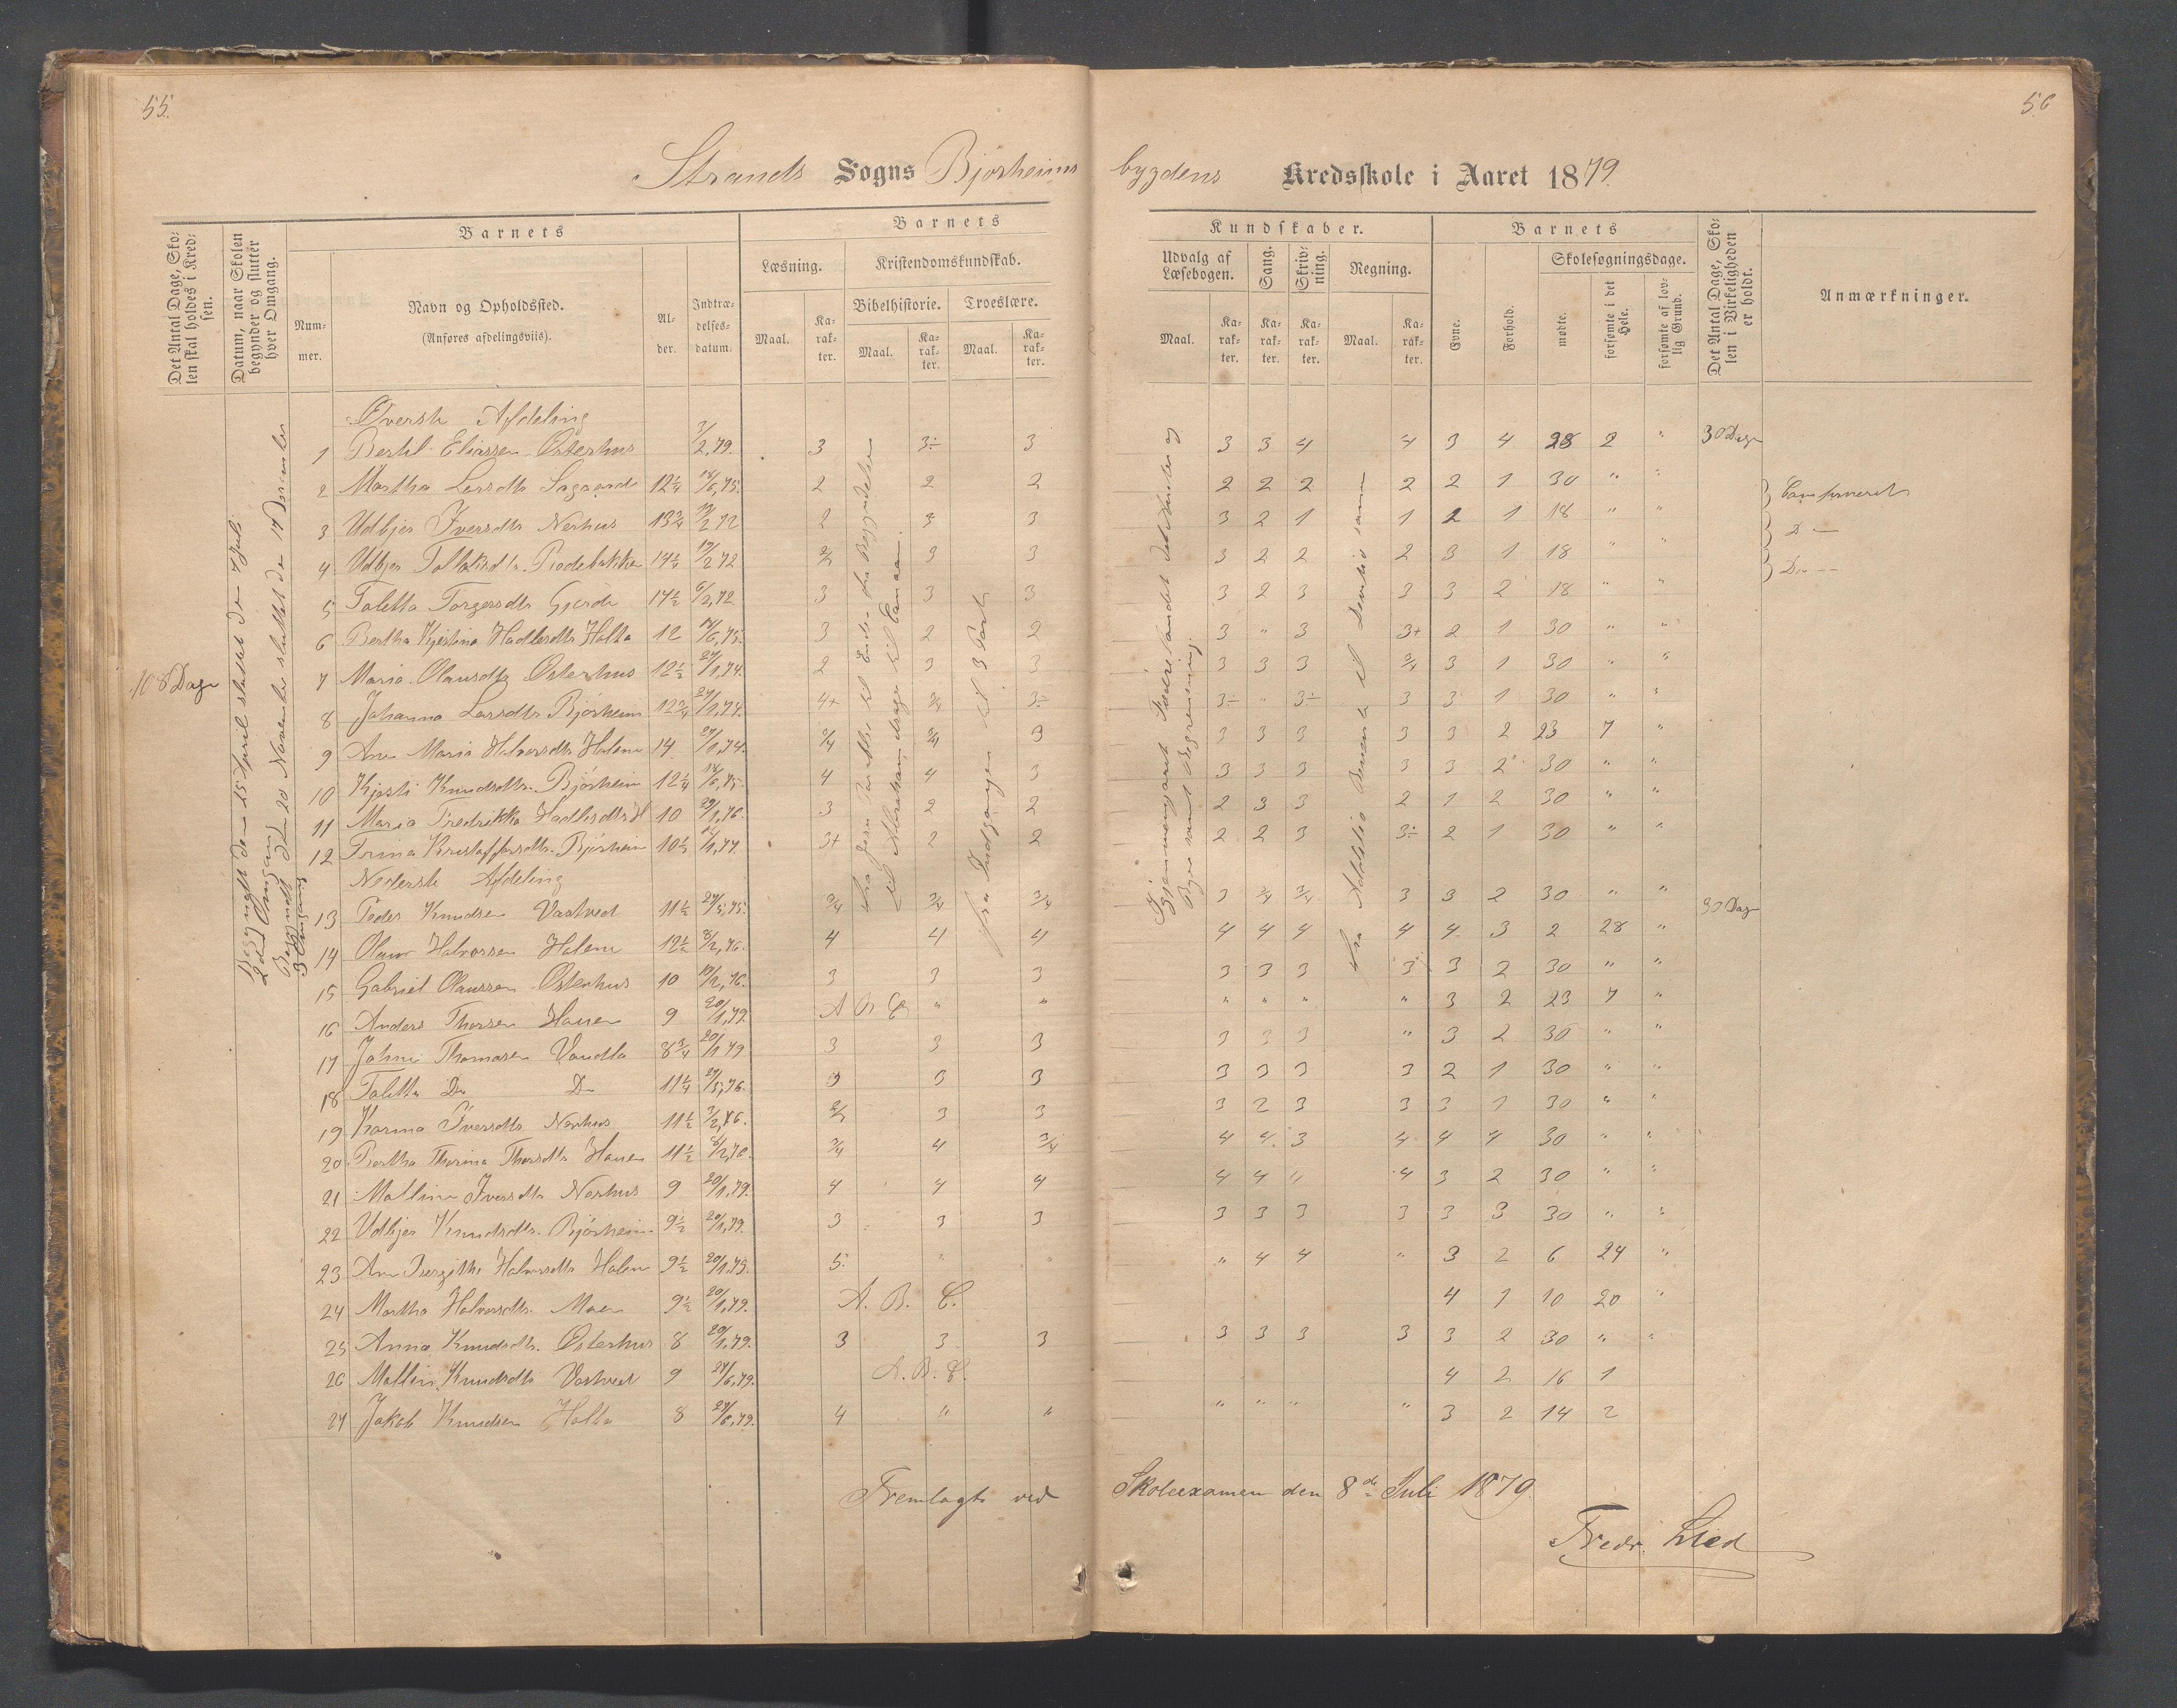 55.
56
Strands Sogns Bjørheims bygdens Kredsskole i Aaret 1879.
Det Antal Dage, Skolen skal holdes i Kredsen.
Datum, naar Skolen begynder og slutter hver Omgang.
Barnets
Nummer.
Navn og Opholdssted.
(Anføres afdelingsviis).
Alder.
Indtrædelsesdatum.
Barnets
Læsning.
Kristendomskundskab.
Bibelhistorie.
Troeslære.
Maal. Karakter. Maal. Karakter. Maal. Karakter.
Kundskaber.
Udvalg af Læsebogen.
Sang.
Skrivning.
Regning.
Maal. Karakter. Karakter. Karakter. Maal. Karakter.
Barnets
Evne.
Forhold.
Skolesøgningsdage.
mødte.
forsømte i det Hele.
forsømte af lovlig Grund.
Det Antal Dage, Skolen i Virkeligheden er holdt.
Anmærkninger.
108 Dage
Begyndt den 15 April sluttet den 7 Juli
2den Omgang
Begyndt den 20 November sluttet den 17 December
3 Omgang
Øverste Afdeling
1 Bertel Eliassen Østerhus 3/2,79. 3 3÷ 3 3 3 4 4 3 4 28 2 " 30 Dage
2 Martha Larsdtr 12 1/4 18/6,75. 2 2 2 2 2 2 2 2 1 30 " " Confirmeret
3 Udbjør Iversdtr Nerhus 13 3/4 19/2 72 2 3 3 3 2 1 1 2 1 18 " " D —
4 Udbjør 14 1/4 19/2 72 2/3 3 3 3 2 2 2 3 1 18 " " Do —
5 Taletta Torgersdtr Gjerde 14 1/2 6/2,72. 3 3 3 3 2 3 3 3 2 18 " "
6 Bertha Kjestina Hadlesdtr Holta 12 18/6,75. 3 2 2 3 " 3 3+ 2 1 30 " "
7 Maria Olausdtr Østerhus 12 1/2 27/1,74. 2 3 3 3 3 3 3/4 3 1 30 " "
8 Johanna Larsdtr Bjørheim 12 3/4 27/1,74. 4+ 3/4 3÷ 3÷ " 3÷ 3 3 1 30 " "
9 Ane Maria Halvorsdtr Holene 14 27/1,74. 3/4 3/4 3 3 3 3 3 3 2 23 7 "
10 Kjersti Knudsdtr. Bjørheim 12 1/4 18/6,75. 4 4 3 3 3 3 3 3 2 30 " "
11 Maria Fredrikka Hadlesdtr H 10 29/1,76. 3 2 2 2 3 3 2 1 2 30 " "
12 Trina Kristoffersdtr. Bjørheim 10 1/2 3+ 2 2 2 2 3 3÷ 2 1 30 " "
Nederste Afdeling
13 Peder Knudsen Vastveit 11 1/2 27/5,75. 3/4 3/4 3/4 3 3/4 3/4 3 3 2 30 " " 30 Dage
14 Olaus Halvorsen Holene 12 1/2 8/2,76. 4 4 4 4 4 4 4 4 3 2 28 "
15 Gabriel Olaussen Østerhus 10 19/2,76. 3 3 3 3 3 3 3 3 2 30 " "
16 Anders Thorsen Hauen 9 20/1,79. A B C " " " " " " 3 2 23 7 "
17 Johne Thomasen Vaudla 8 3/4 20/1 79 3 3 3 3 3 3 " 3 2 30 " "
18 Taletta Do Do 11 1/4 27/5,76. 3 3 3 3 3 3 3 2 1 30 " "
19 Karina Iversdtr Nerhus 11 1/2 2/3 3 3 3 2 3 3 3 1 30 " "
20 Bertha Thorina Thorsdtr Hauen 11 1/2 8/2,76. 3/4 4 3/4 4 4 3 4 4 4 30 " "
21 Malline Iversdtr Nerhus 9 20/1,79. 4 4 4 4 4 " 4 3 2 30 " "
22 Udbjør Knudsdtr. Bjørheim 9 1/2 20/1,79. 3 3 3 3 3 3 3 3 3 30 " "
23 Ane Bergithe Halvorsdtr Holene 9 1/2 20/1,79. 5. " " " 4 4 " 3 2 6 24 "
24 Martha Halvorsdtr. Moen 9 1/2 20/1,79. A. B. C. 4 1 10 20 "
25 Anna Knudsdtr. Østerhus 8 20/1,79. 3 3 3 3 3 3 3 3 2 30 " "
26 Malline Knudsdtr Vastveit 9 27/6,79. A. B. C. 4 2 16 1
27 Jakob Knudsen Holta 8 27/6,79. 4 " " " " " " 3 2 14 2
Fra Jesu til Ende. Fra Begyndelsen
til Abrahams drager til Canaan.
Fra Indgangen til 3 Part
Gjennemgaaet Fædrelandet dets Kyster og
Byer samt Begrensning.
Fra Addition til Division samme
Fremlagt ved Skoleexamen den 8de Juli 1879.
Fredr. Lied